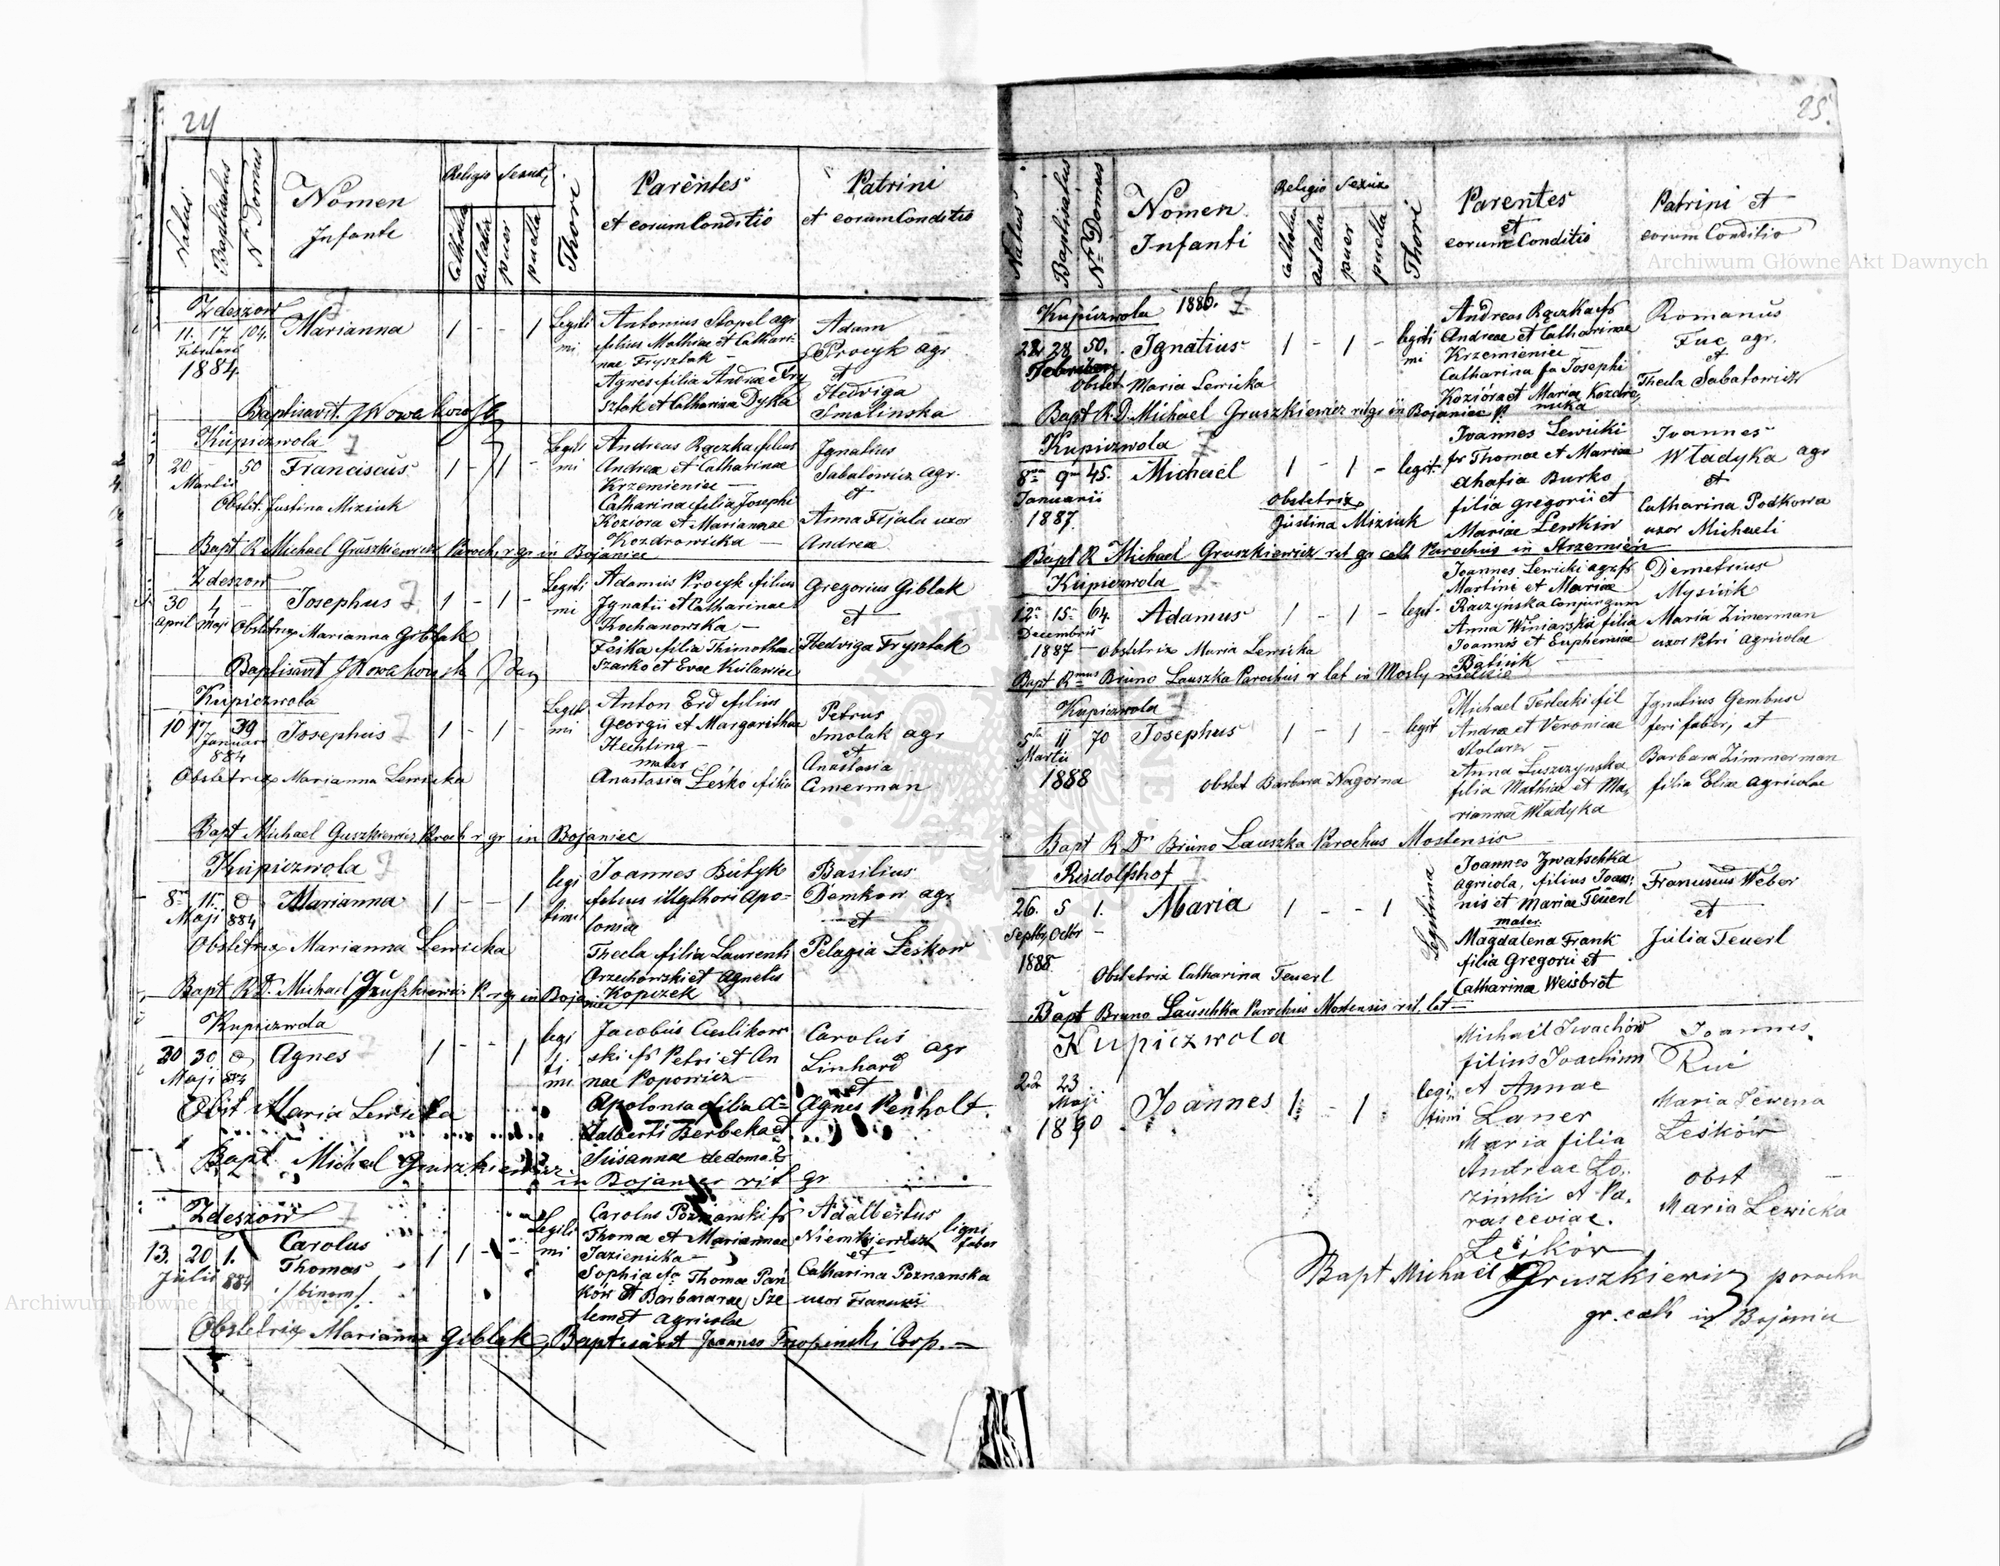 24
Natus
Baptisatus
Nr Domus
Nomen
Infante
Religio
Sexus
Catholica
aut alia
puer
puella
Thori
Parentes
et eorum Conditio
Patrini
et eorum Conditio
Zdeszow
11. 17. 104.
Februari
1884
Marianna
1 - - 1
Legiti
mi
Antonius Stopel agr
filius Mathiae et Cathari-
nae Frysztak -
Agnes filia Andreae Fry
sztak et Catharina Dyka
Adam
Procyk agr
et
Hedviga
Smolinska
Baptisavit Nowakowski
Kupiczwola
20 50
Martis
Franciscus
1 - 1 -
Legiti
mi
Andreas Rączka filius
Andreae et Catharinae
Krzemieniec -
Catharina filia Josephi
Koziora et Mariannae
Kozdrowicka -
Ignatius
Sabatowicz agr.
et
Anna Fijała uxor
Andrea
Obstet. Justina Miziuk
Bapt R Michael Gruszkiewicz Paroch r gr in Bojaniec
Zdeszow
30 4 -
April Maji
Josephus
1 - 1 -
Legiti
mi
Adamus Procyk filius
Ignatii et Catharinae
Kochanowska -
Feśka filia Thimothaei
Szarko et Evae Kulawiec
Gregorius Giblak
et
Hedviga Frysztak
Obstetrix Marianna Giblak
Baptisavit Nowakowski
Kupiczwola
10 17 39
Januar
884
Josephus
1 - 1 -
Legit
mi
Anton Erd filius
Georgii et Margarithae
Hechling -
mater
Anastasia Leśko filia
Petrus
Smolak agr
et
Anastasia
Cimerman
Obstetrix Marianna Lewicka
Bapt Michael Guszkiewicz Paroch r gr in Bojaniec
Kupiczwola
8 11
Maji 884
Marianna
1 - - 1
legi
timi
Joannes Butyk
filius illeg thori Apo-
loniae
Thecla filia Laurenti
Orzechowski et Agnetis
Kopczek
Basilius
Demkow agr
et
Pelagia Leśkow
Obstetrix Marianna Lewicka
Bapt R D. Michael Gruszkiewicz P r gr in Bojaniec
Kupiczwola
30 30
Maji 884
Agnes
1 - - 1
legi
ti
mi
Jacobus Cieślikow
ski fs Petri et An
nae Popowicz
Apolonia filia A-
dalberti Berbeka et
Susannae de domo
Carolus agr
Linhard
et
Agnes Penholt.
Obst Maria Lewicka
Bapt Michael Gruszkiewicz in Bojaniec rit gr
Zdeszow
13. 20 1.
Julii 884
Carolus
Thomas
/binom/
Legiti
mi
Carolus Poznanski fs
Thomae et Mariannae
Jazienicka -
Sophia fa Thomae Pań
ków et Barbarae Sze
lemet agricolae
Adalbertus
Niemkiewicz ligni
faber
et
Catharina Poznanska
uxor Francisci
Obstetrix Marianna Giblak, Baptisavit Joannes Coop. -
25.
Natus
Baptisatus
Nr Domus
Nomen
Infanti
Religio
Sexus
Catholica
aut alia
puer
puella
Thori
Parentes
et
eorum Conditio
Patrini et
eorum Conditio
Kupiczwola 1886.
28 28 50.
Februar
Ignatius
1 - 1 -
legiti
mi
Andreas Rączka fs
Andreae et Catharinae
Krzemieniec -
Catharina fa Josephi
Kozióra et Maria Kozdro
nicka
Romanus
Fuc agr.
et
Thecla Sabatowicz
Obstet Maria Lewicka
Bapt R. D. Michael Gruszkiewicz rit gr in Bojaniec p.
Kupiczwola
8 9 45.
Januarii
1887
Michael
1 - 1 -
legit.
Joannes Lewicki
fs Thomae et Mariae
Ahafia Burko
filia Gregorii et
Mariae Lewkin
Joannes
Władyka agr
et
Catharina Podkowa
uxor Michaeli
Obstetrix
Justina Miziuk
Bapt R Michael Gruszkiewicz rit gr cath Parochus in Strzemień
Kupiczwola
12 15 64.
Decembris
1887
Adamus
1 - 1 -
legit.
Joannes Lewicki agr fs
Martini et Mariae
Raczynska conjugum
Anna Winiarski filia
Joannis et Euphemiae
Batiuk
Demetrius
Mysiuk
Maria Zimerman
uxor Petri agricolae
obstetrix Maria Lewicka
Bapt Rmus Bruno Lauszka Parochus r lat in Mosty wielkie
Kupiczwola
5 11 70
Martii
1888
Josephus
1 - 1 -
legit
Michael Terlecki fil
Andreae et Veronicae
Stolarz -
Anna Łuszczynska
filia Mathiae et Ma-
rianna Władyka
Ignatius Gembus
feri faber, et
Barbara Zimmerman
filia Eliae agricolae
Obstet Barbara Nagorna
Bapt R Dr Bruno Lauszka Parochus Mostensis
Rudolfshof
26. 5 1.
Septbr Octbr
1888
Maria
1 - - 1
Legitima
Joannes Zwatschka
agricola, filius Joan-
nis et Mariae Teuerl
mater
Magdalena Frank
filia Gregorii et
Catharina Weisbrot
Franciscus Weber
et
Julia Teuerl
Obstetrix Catharina Teuerl
Bapt Bruno Lauschka Parochus Mostensis rit. lat -
Kupiczwola
22 23
Maji
1890
Joannes
1 - 1
legi
timi
Michael Iwachów
filius Joachim
et Annae
Laner
Maria filia
Andreae Ło-
zinski et Pa-
rasceviae.
Leśków
Joannes
Ruć
Maria Sewena
Leśków
obst
Maria Lewicka
Bapt Michael Gruszkiewicz parochu
gr. cath in Bojaniec
Archiwum Główne Akt Dawnych
Archiwum Główne Akt Dawnych